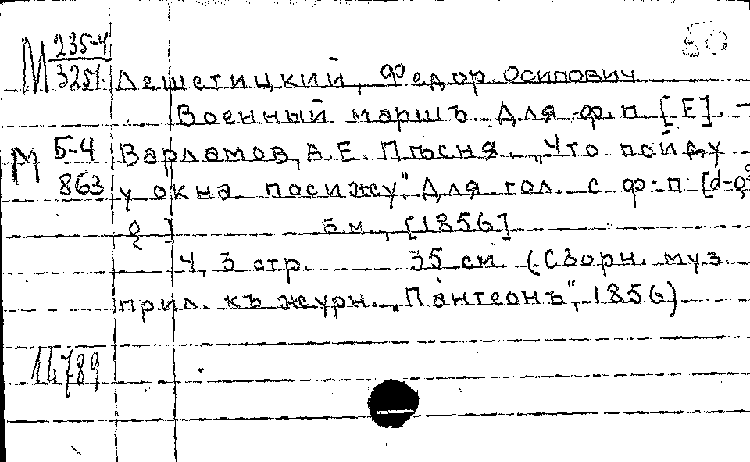 50
М 235-4
3251 Лешетицкий, Федор Осипович
Военный маршъ. Для ф.п. [E]. -
М 5-4 Варламов, А.Е. Пѣсня „Что пойду
863 у окна посижу". Для гол. с ф-п [d-
] б.м., [1856]
4, 3 стр. 35 см (Сборн. муз.
прил. къ журн. „Пантеонъ", 1856)
14789